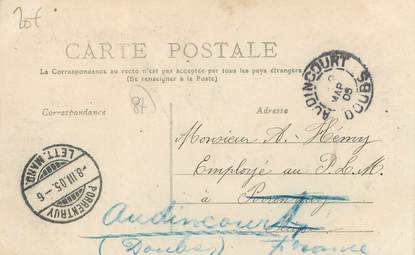 20f
CARTE POSTALE
La Correspondance au recto n'est pas acceptée par tous les pays étrangers
(Se renseigner à la Poste)
87
Correspondance
Adresse
AUDINCOURT DOUBS
MAR
05
Monsieur A. Hémy
Employé au P.L.M.
à Porrentruy
Audincourt
(Doubs) France
PORRENTRUY
-8.III.05.-6
LETT. MAND.